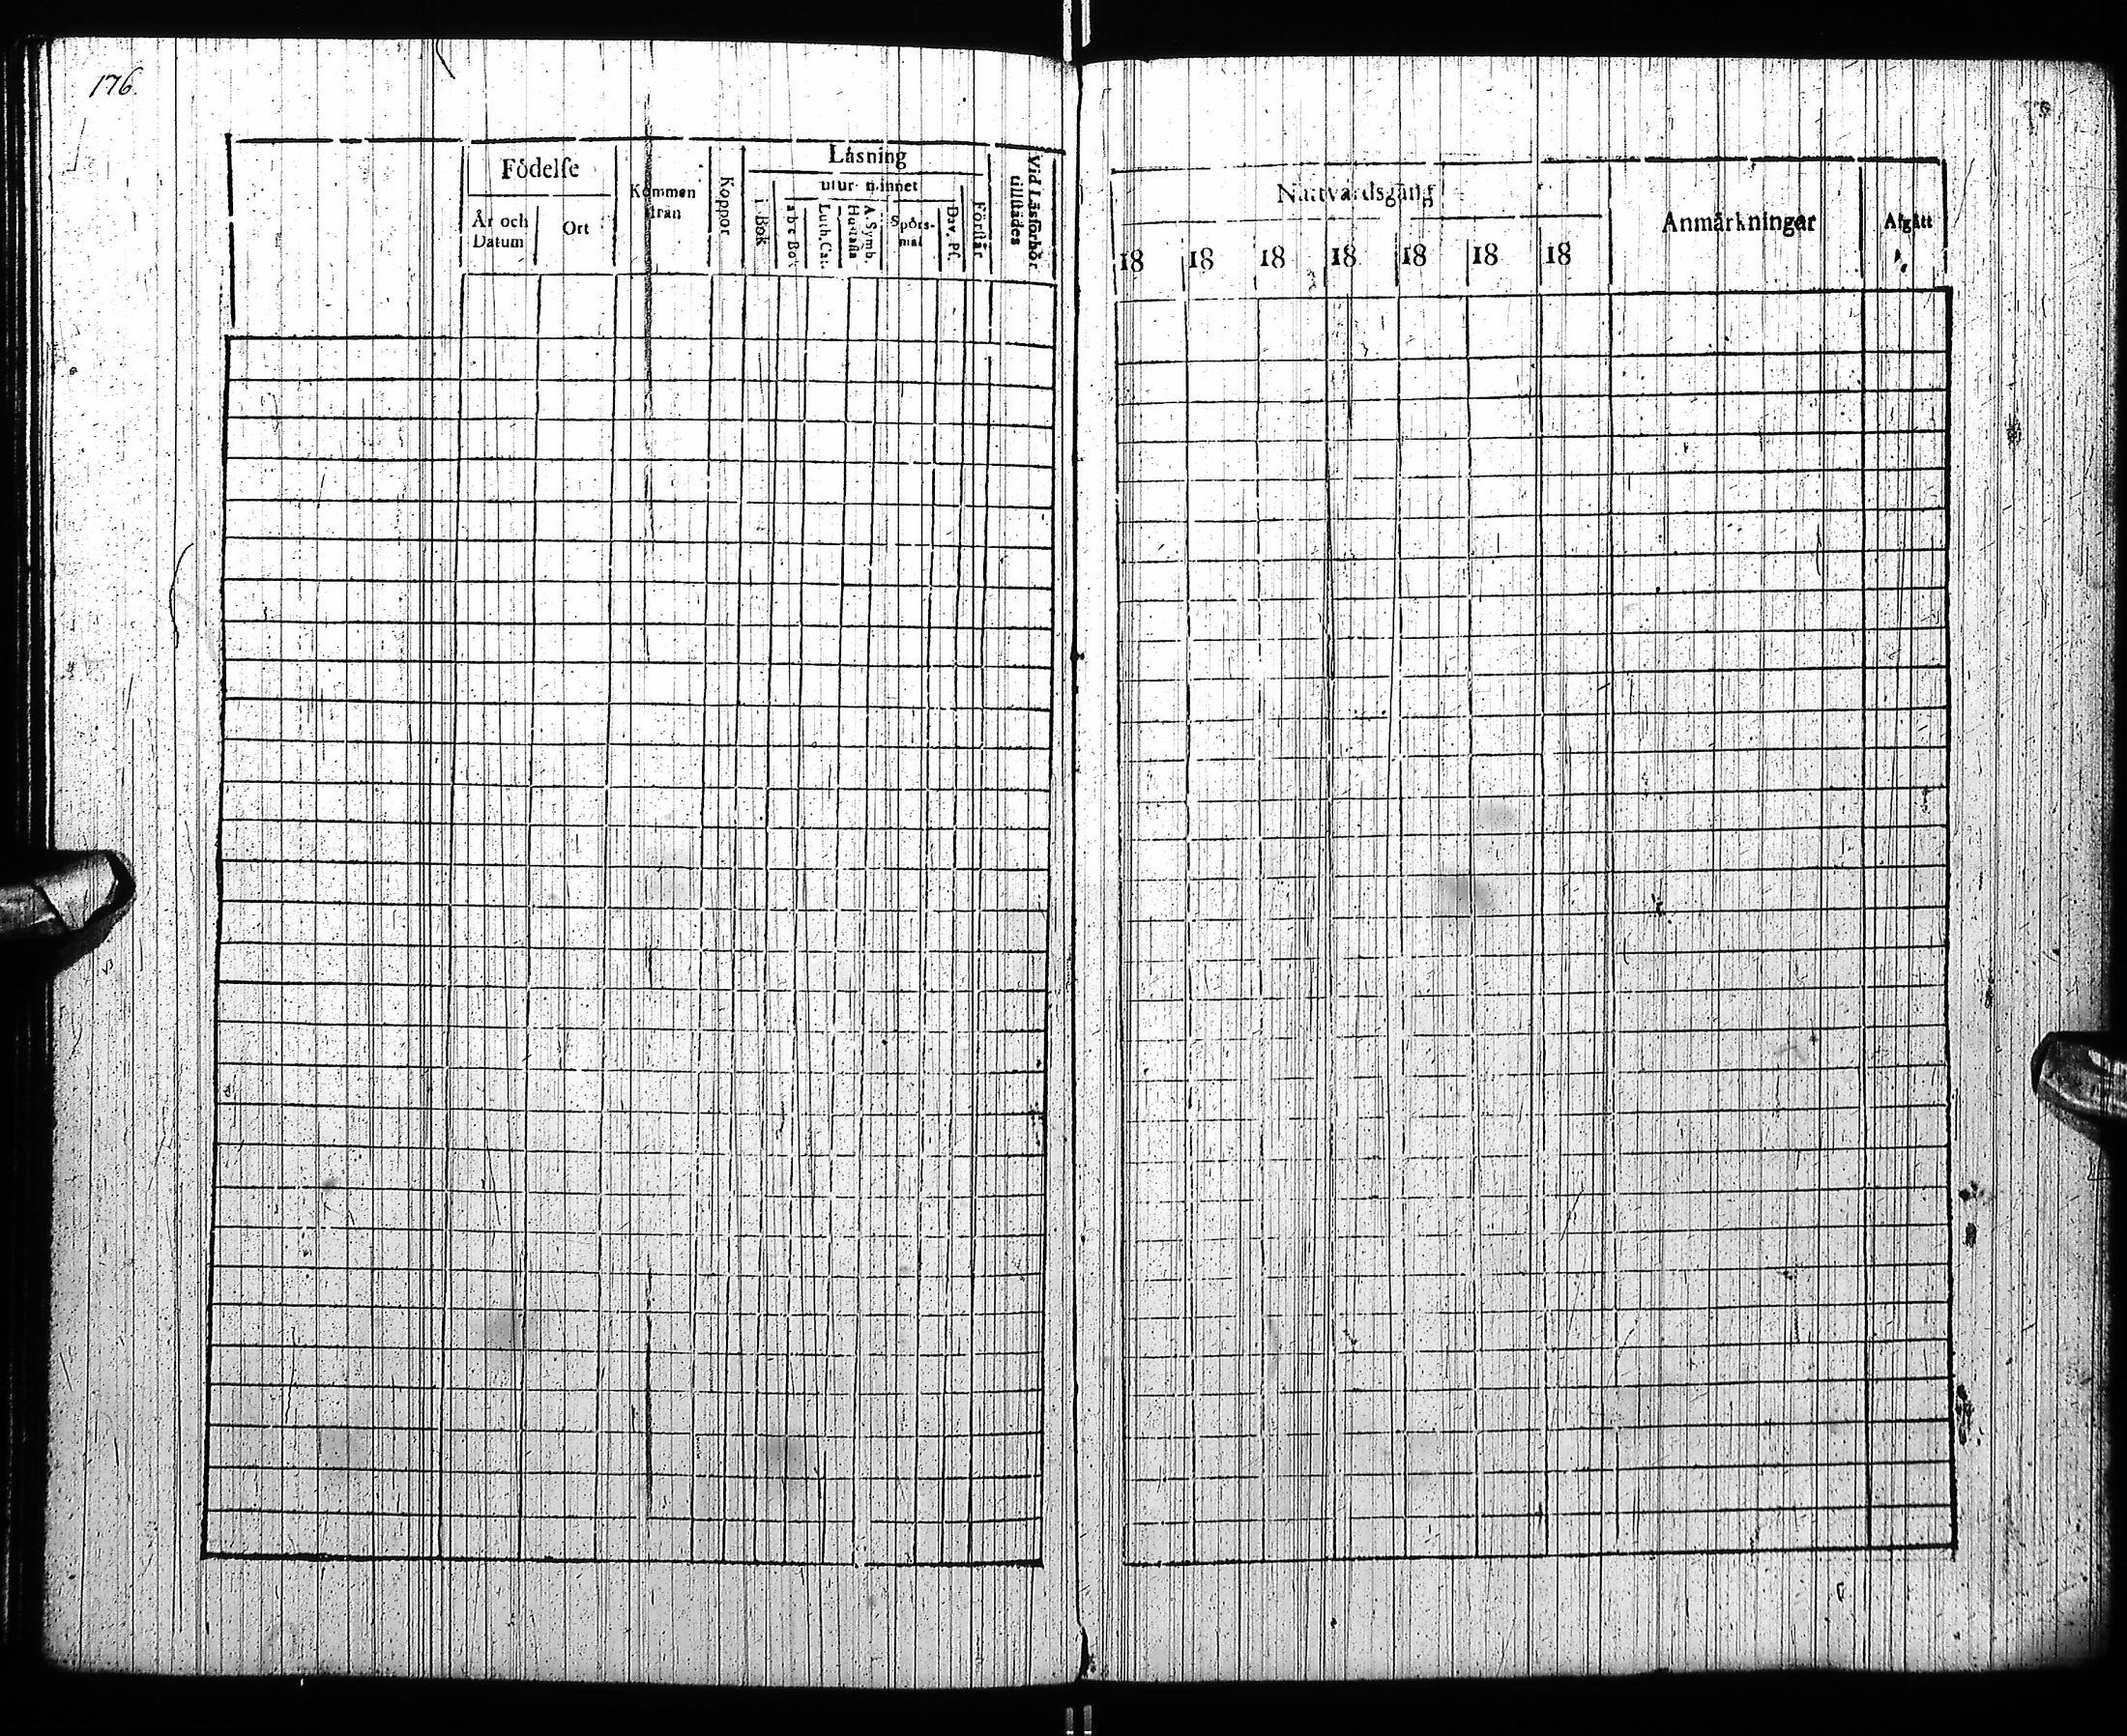 176.
Födelse
År och
Datum
Ort
Kommen
från
Koppor
Läsning
utur minnet
i Bok
a b c Bok
Luth. Cat.
Hustafla
A. Symb.
Spörs-
mål
Dav. Ps.
Förstår
Vid Läsförhör
tillstädes
Nattvardsgång
18 18 18 18 18 18 18
Anmärkningar
Afgått